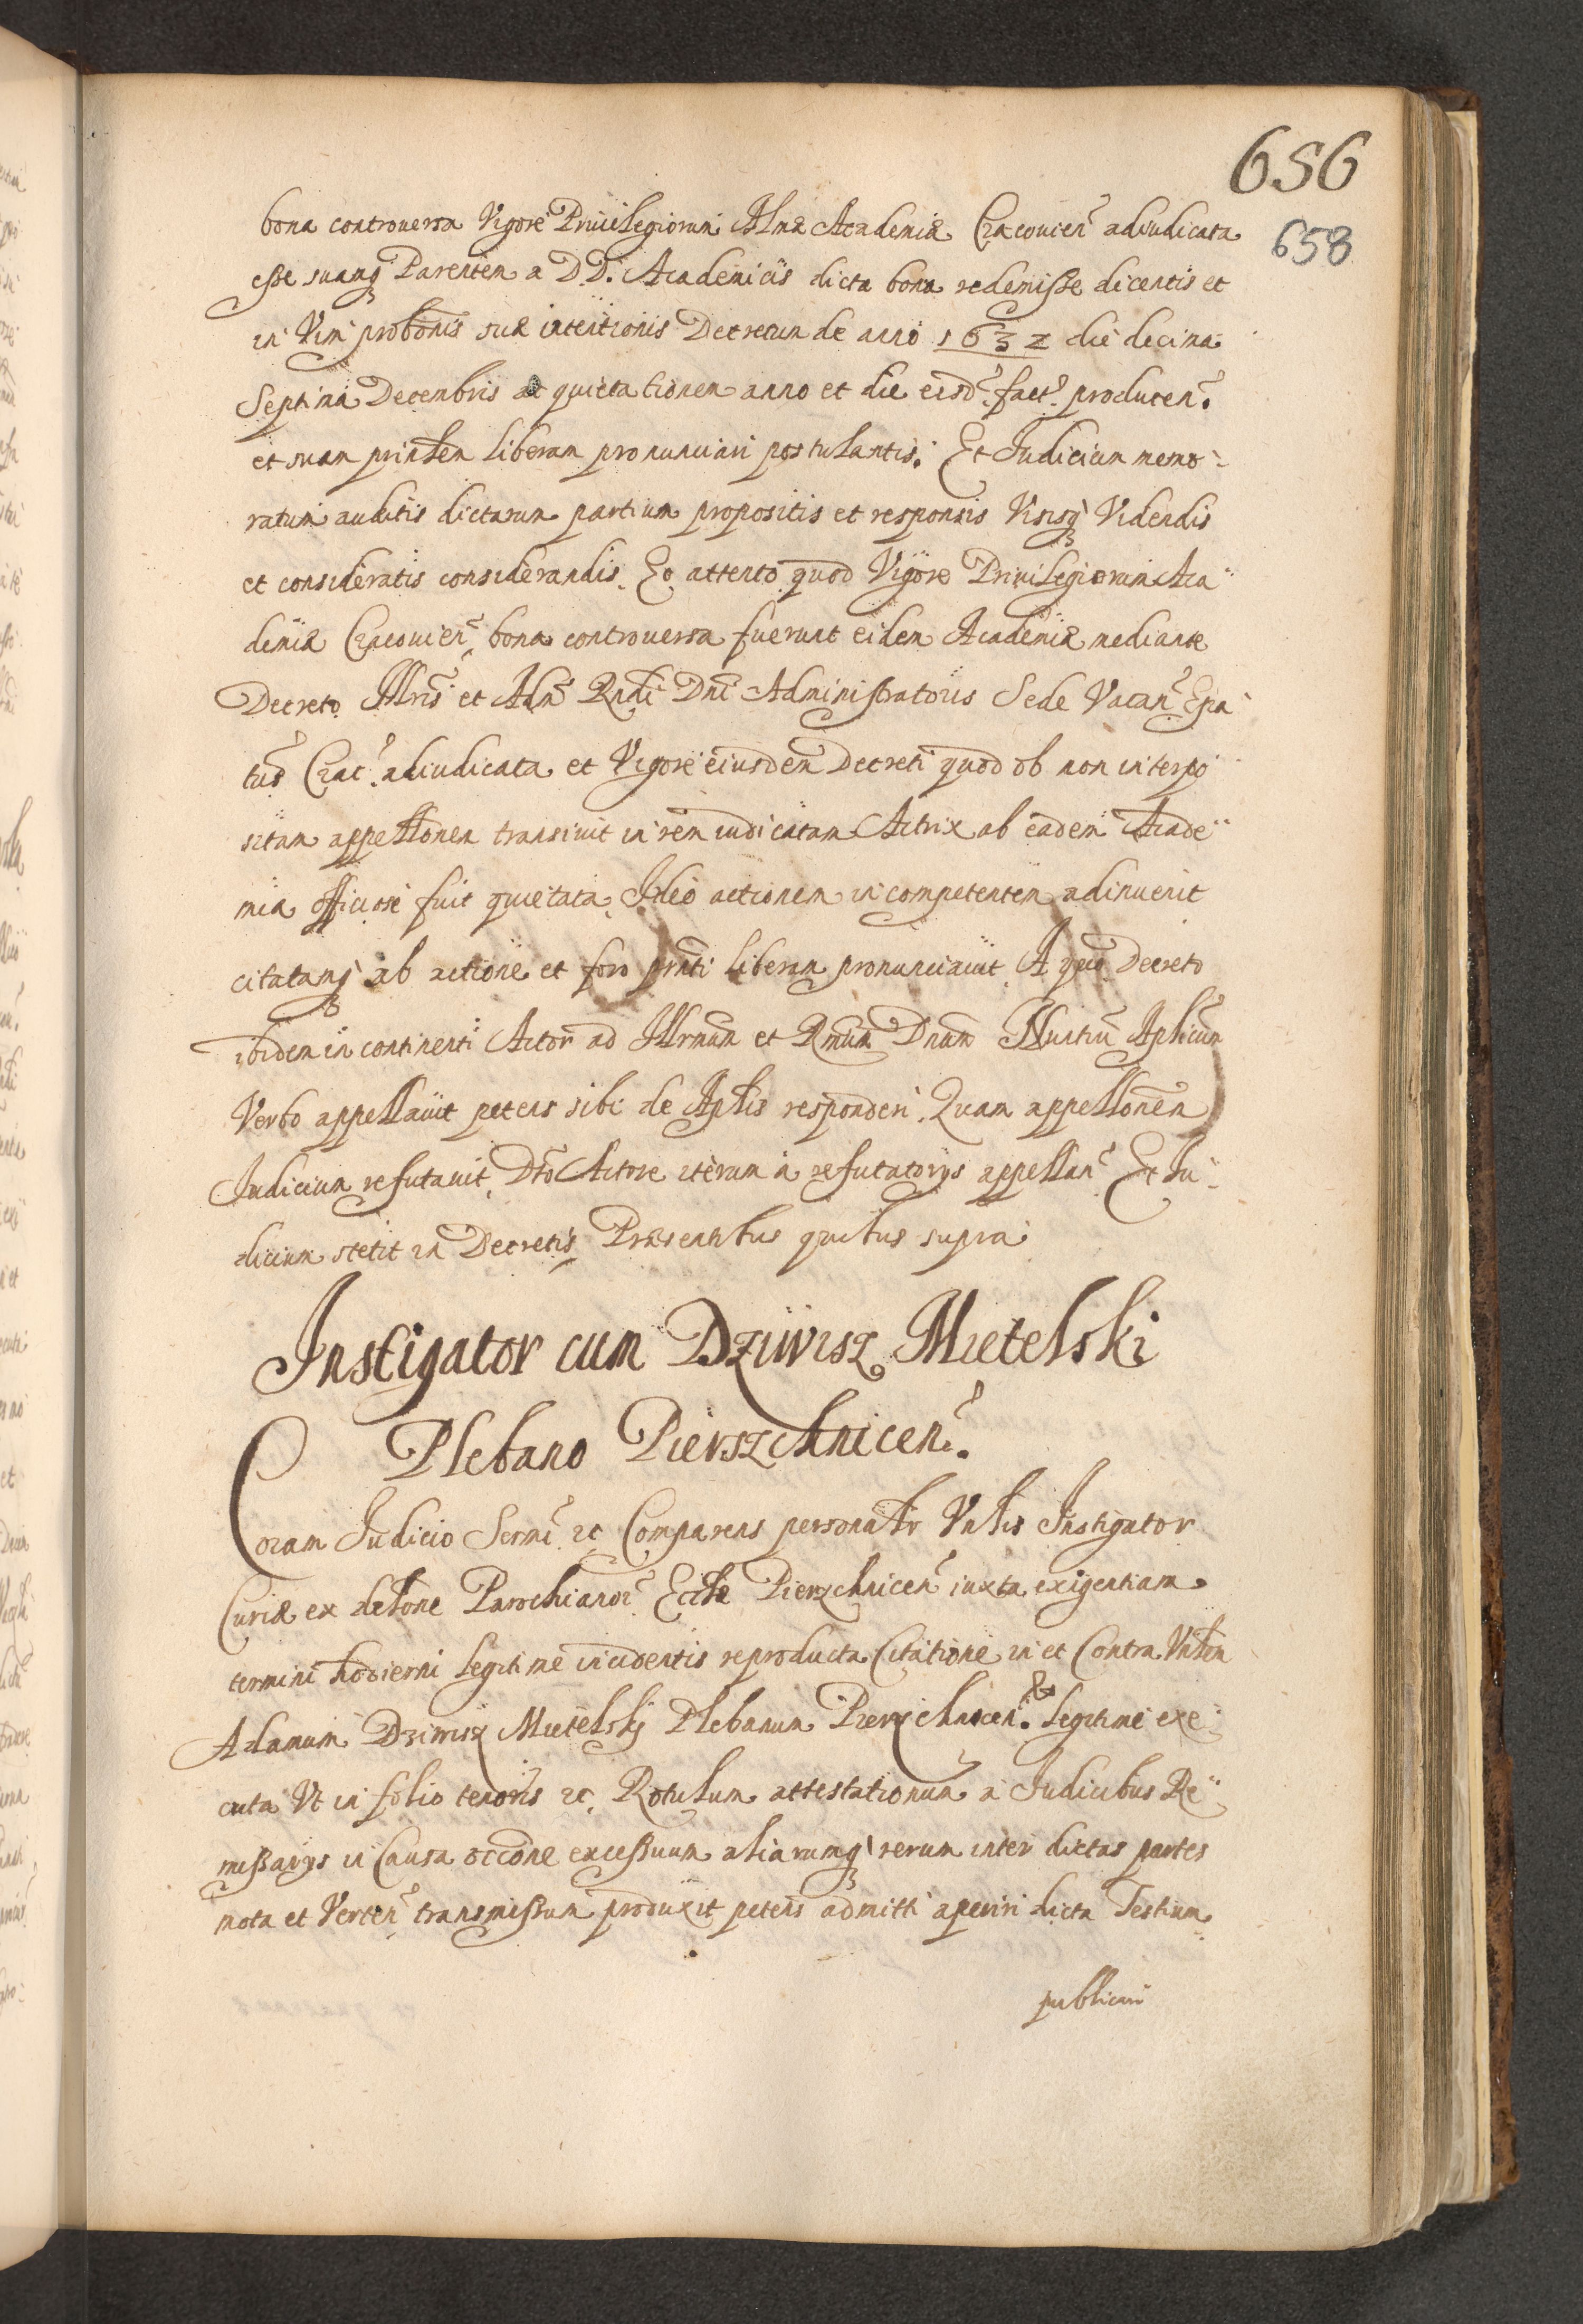 656
658
bona controuersa Vigore Priuilegiorum Almæ Academiæ Cracouien̄ adiudicata
esse suamq₃ Parentem a D.D. Academicis dicta bona redemisse dicentis et
in Vim probōnis suæ intentionis Decretum de anno 1632 die decima
Septima Decembris et quietationem anno et die eisd. fact. producen.
et suam prinlem liberam pronunciari postulantis. Et Iudicium memo-
ratum auditis dictarum partium propositis et responsis Visisq₃ Videndis
et consideratis considerandis. Eo attento quod Vigore Priuilegiorum Aca-
demiæ Cracouien̄ bona controuersa fuerunt eidem Academiæ mediante
Decreto Illris et Adm Rndi Dni Administratoris Sede Vacan Epa-
tus Crac. adiudicata et Vigore eiusdem Decreti quod ob non interpo-
sitam appellōnem transiuit in rem iudicatam Actrix ab eadem Acade-
mia officiose fuit quietata, Ideo actionem incompetentem adinuenit
citatamq₃ ab actione et foro prnti liberam pronunciauit. A quo Decreto
ibidem in continenti Actor ad Illrmum et Rmum Dnum Nuntiū Aplicum
Verbo appellauit petens sibi de Aplis responderi. Quam appellōnem
Iudicium refutauit, Dto Actore iterum a refutatorys appellan. Et Iu-
dicium stetit in Decretis, Præsentibus quibus supra
Instigator cum Dziwisz Mietelski
Plebano Pierszchnicen.
Coram Iudicio Sermi etc Comparens personalr Vnlis Instigator
Curiæ ex delōne Parochianor. Ecclæ Pierzchnicen iuxta exigentiam
termini hodierni legitime incidentis reproducta Citatione in et Contra Vnlem
Adamum Dziwisz Mietelsky Plebanum Pierzchnicen. & legitime exe-
cuta Vt in folio tenoris etc. Rotulum attestationum a Iudicibus Re-
missarys in Causa occōne excessuum aliarumq₃ rerum inter dictas partes
mota et Verten transmissum produxit petens admitti aperiri dicta Testium
publicari